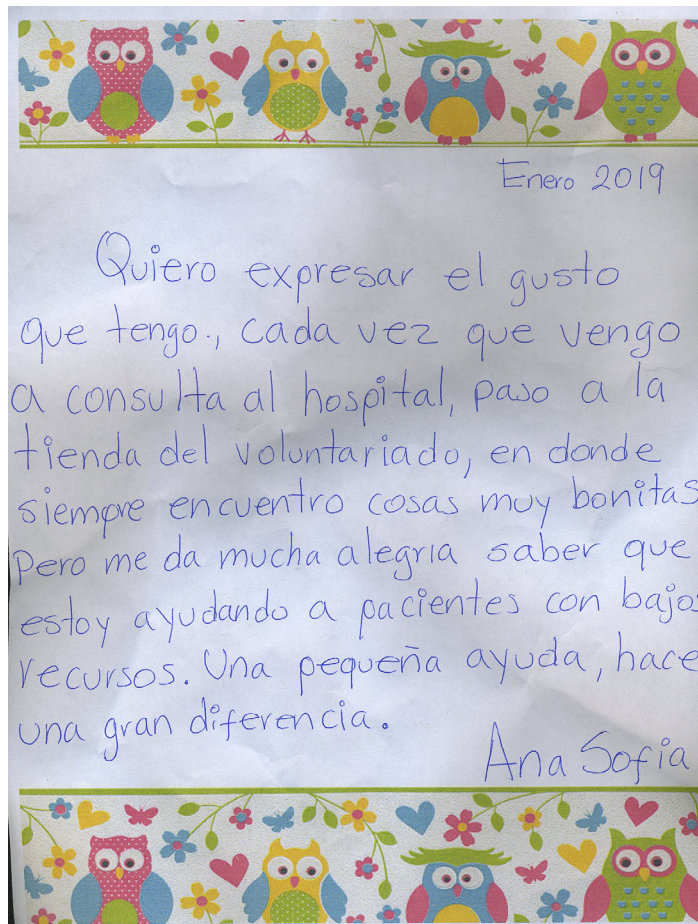 Enero 2019
Quiero expresar el gusto
que tengo., cada vez que vengo
a consulta al hospital, paso a la
tienda del voluntariado, en donde
siempre encuentro cosas muy bonitas
Pero me da mucha alegria saber que
estoy ayudando a pacientes con bajos
recursos. Una pequeña ayuda, hace
una gran diferencia.
Ana Sofia